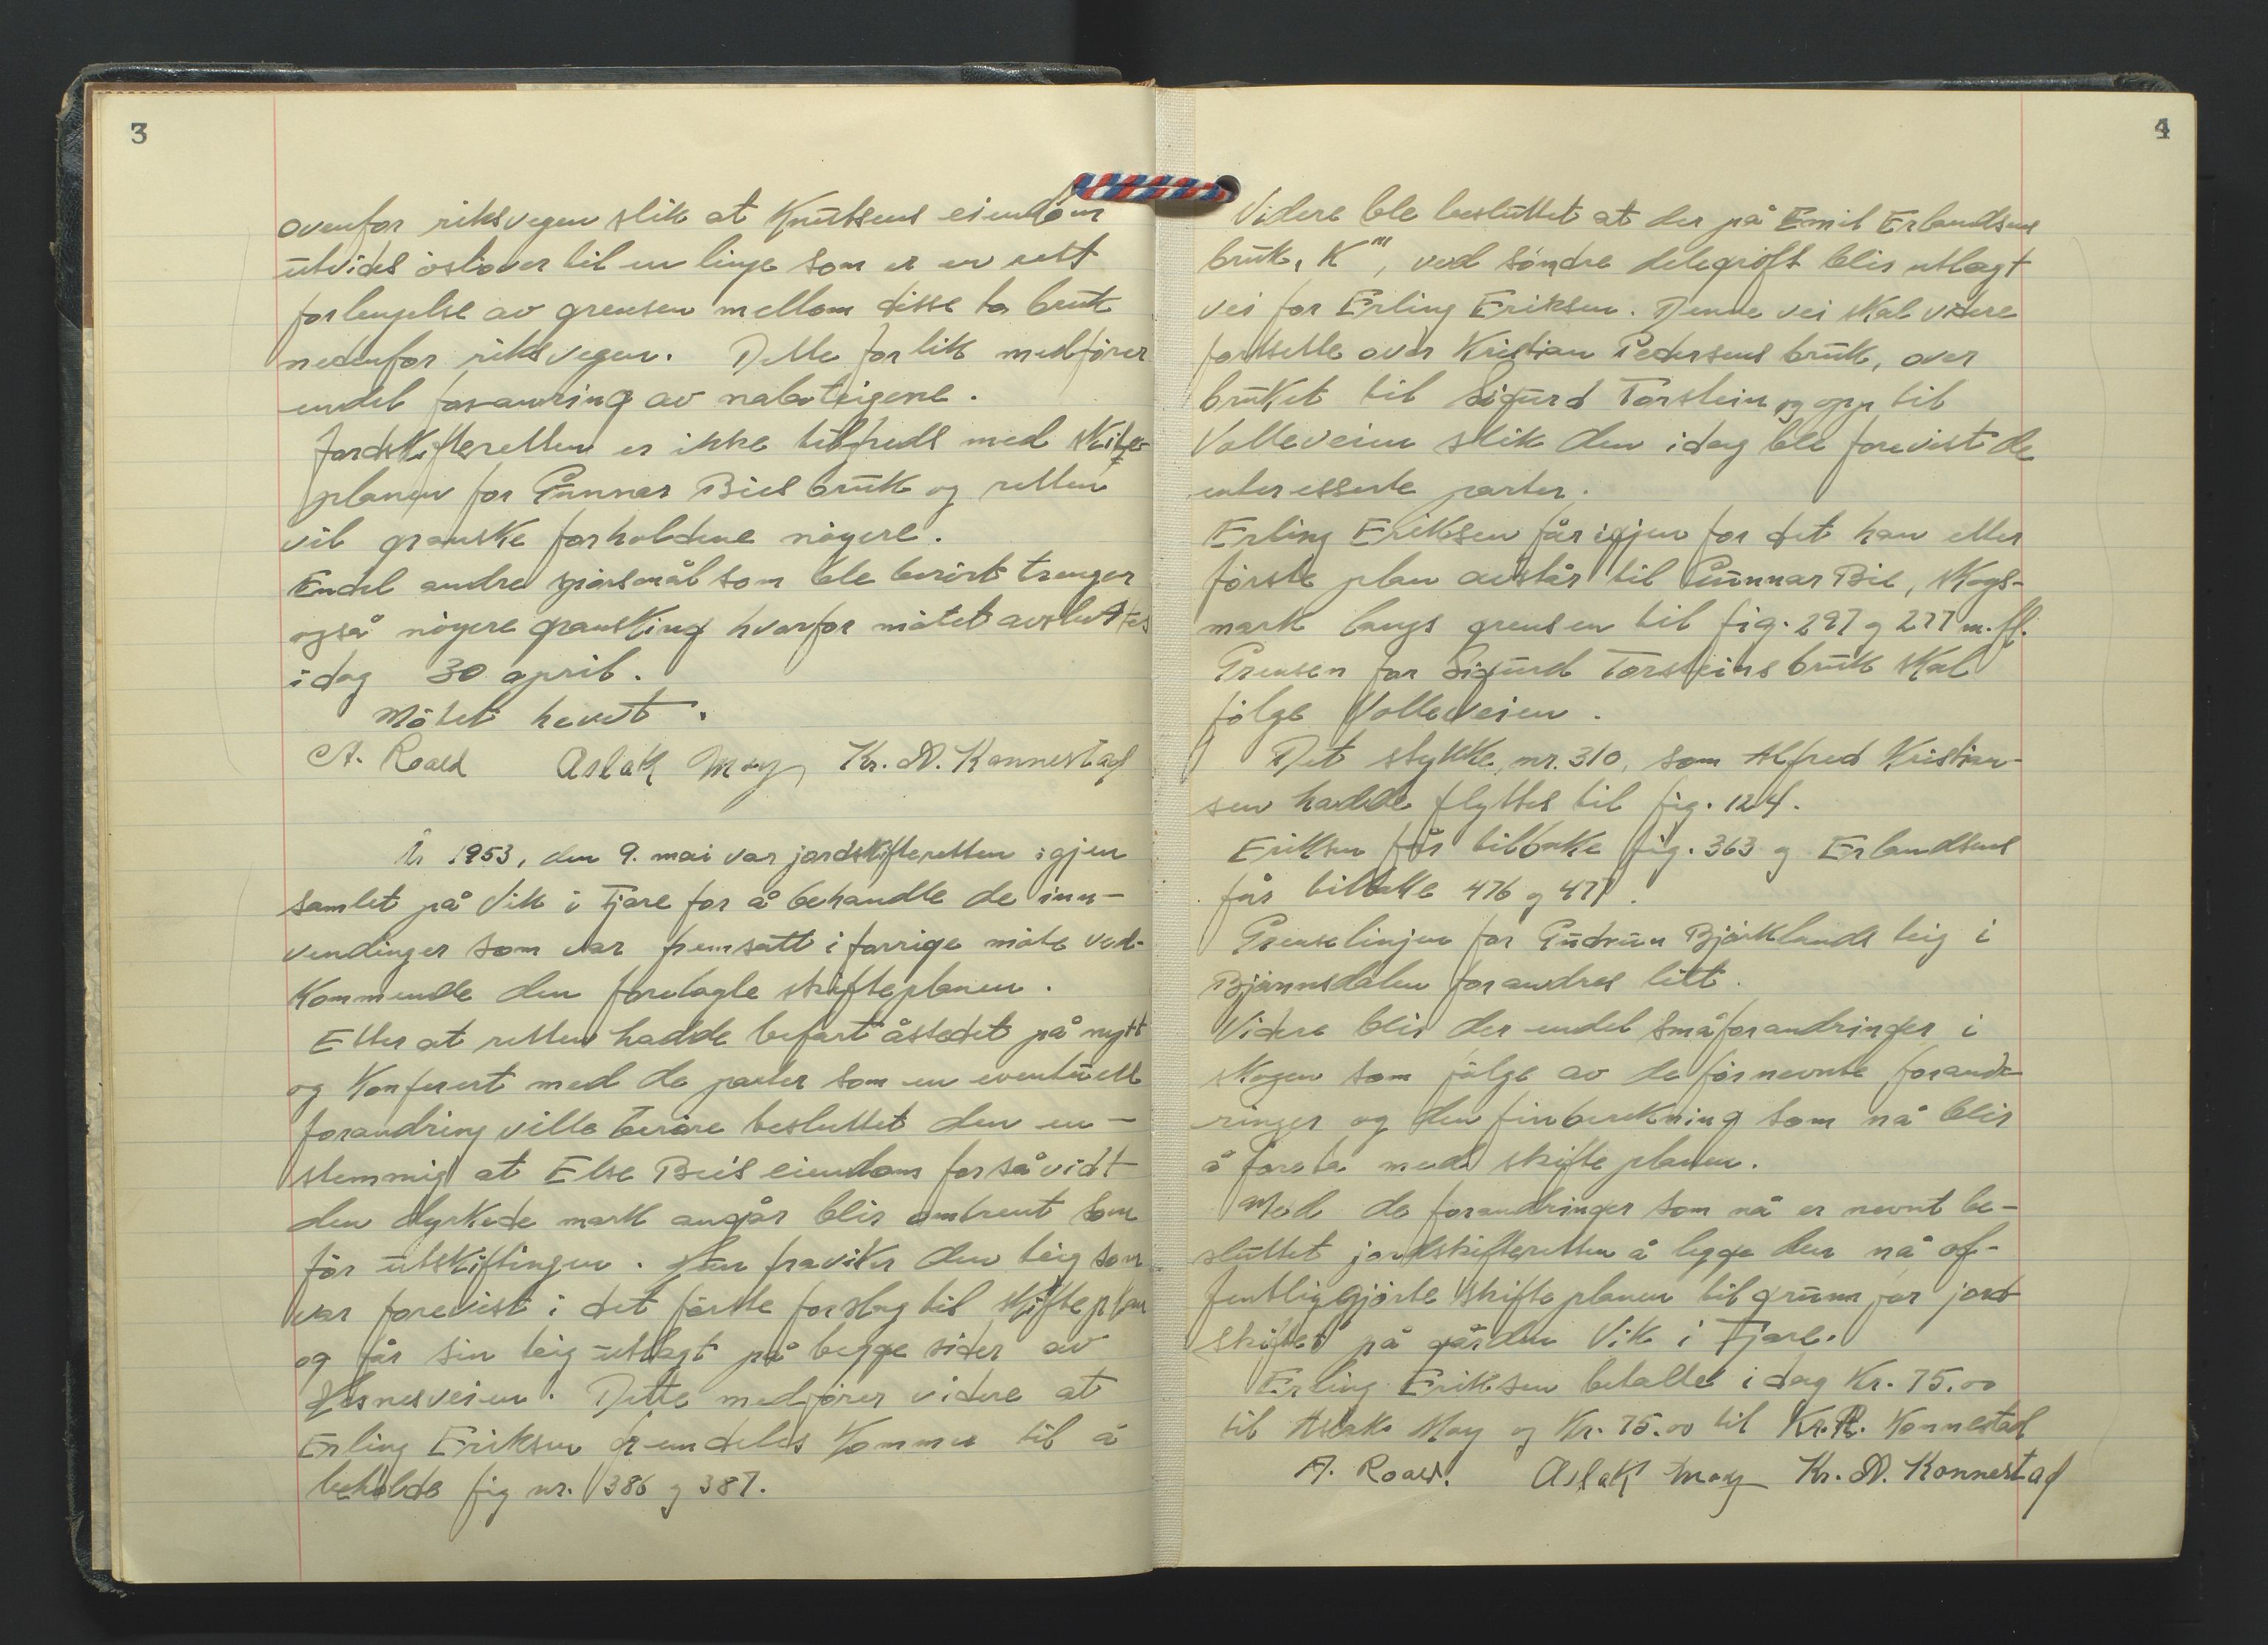 3
ovenfor riksvegen slik at Knutsens eiendom
utvides östover til en linje som er en rett
forlengelse av grensen mellom disse to bruk
nedenfor riksvegen. Dette forlik medförer
endel forandring av naboteigene.
Jordskifteretten er ikke tilfreds med skifte-
planen for Gunnar Bies bruk og retten
vil granske forholdene nöyere.
Endel andre spörsmål som ble berört trenger
også nöyere gransking hvorfor mötet avsluttes
idag 30 april.
Mötet hevet.
A. Roald Aslak May Kr. A. Konnestad
År 1953, den 9. mai var jordskifteretten igjen
samlet på Vik i Fjære for å behandle de inn-
vendinger som var fremsatt i forrige möte ved-
kommende den forelagte skifteplanen.
Etter at retten hadde befart åstedet på nytt
og konferert med de parter som en eventuell
forandring ville beröre besluttet den en-
stemmig at Else Beis eiendom forsåvidt
den dyrkede mark angår blir omtrent som
för utskiftingen. Hun fraviker den teig som
var forevist i det förste forslag til skifteplan
og får sin teig utlagt på begge sider av
Hesnesveien. Dette medförer videre at
Erling Eriksen fremdeles kommer til å
beholde fig nr. 386 og 387.
4
Videre ble besluttet at der på Emil Erlandsens
bruk, K''', ved söndre delegröft blir utlagt
vei for Erling Eriksen. Denne vei skal videre
fortsette over Kristian Pedersens bruk, over
bruket til Sigurd Torstein og opp til
Volleveien slik den idag ble forevist de
interesserte parter.
Erling Eriksen får igjen for det han etter
förste plan avstår til Gunnar Bie, skogs-
mark langs grensen til fig. 297 og 277 m.fl.
Grensen for Sigurd Torsteins bruk skal
fölge Volleveien.
Det stykke, nr. 310, som Alfred Kristian-
sen hadde flyttes til fig. 124.
Eriksen får tilbake fig. 363 og Erlandsens
får tilbake 476 og 477.
Grenselinjen for Gudrun Björklands teig i
Björnnsdalen forandres litt.
Videre blir der endel småforandringer i
skogen som fölge av de förnevnte forand-
ringer og den finberekning som nå blir
å foreta med skifteplanen.
Med de forandringer som nå er nevnt be-
sluttet jordskifteretten å legge den nå of-
fentliggjorte skifteplanen til grunn for jord-
skiftet på gården Vik i Fjære.
Erling Eriksen betalte idag Kr. 75.00
til Aslak May og Kr. 75.00 til Kr. A. Konnestad
A. Roald. Aslak May Kr. A. Konnestad